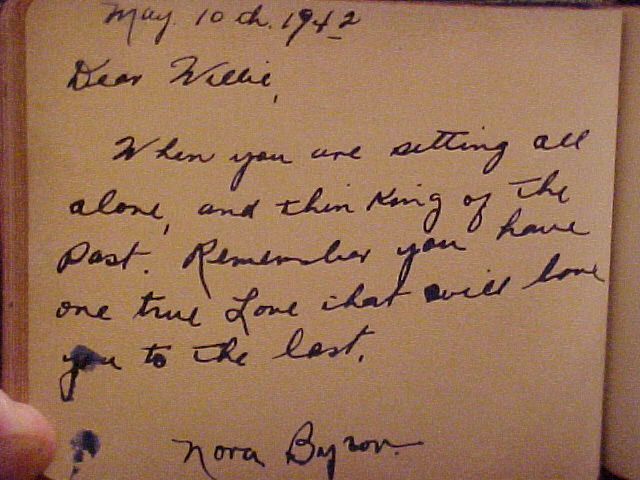 May. 10th. 1942
Dear Willie,
When you are setting all
alone, and thinking of the
Past. Remember you have
one true Love that will love
you to the last.
Nora Byron.